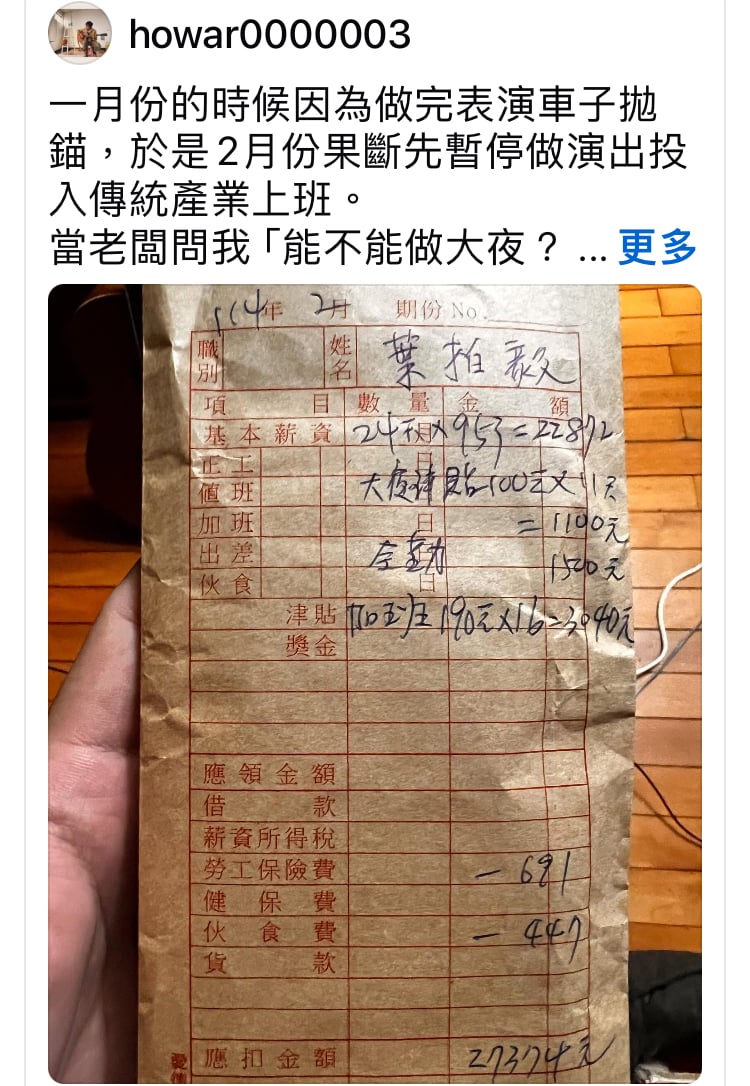 howar0000003
一月份的時候因為做完表演車子拋
錨，於是2月份果斷先暫停做演出投
入傳統產業上班。
當老闆問我「能不能做大夜？ ... 更多
114年 2月 期份 No.
職別 姓名 葉柏毅
項目 數量 金額
基本薪資 24天 月 ×953=22872
正工 日
值班 大夜津貼100元×11天
加班 日 =1100元
出差 全勤 1500元
伙食 日
津貼 加班 190元×16=3040元
獎金
應領金額
借款
薪資所得稅
勞工保險費 -691
健保費
伙食費 -447
貨款
應扣金額 27374元